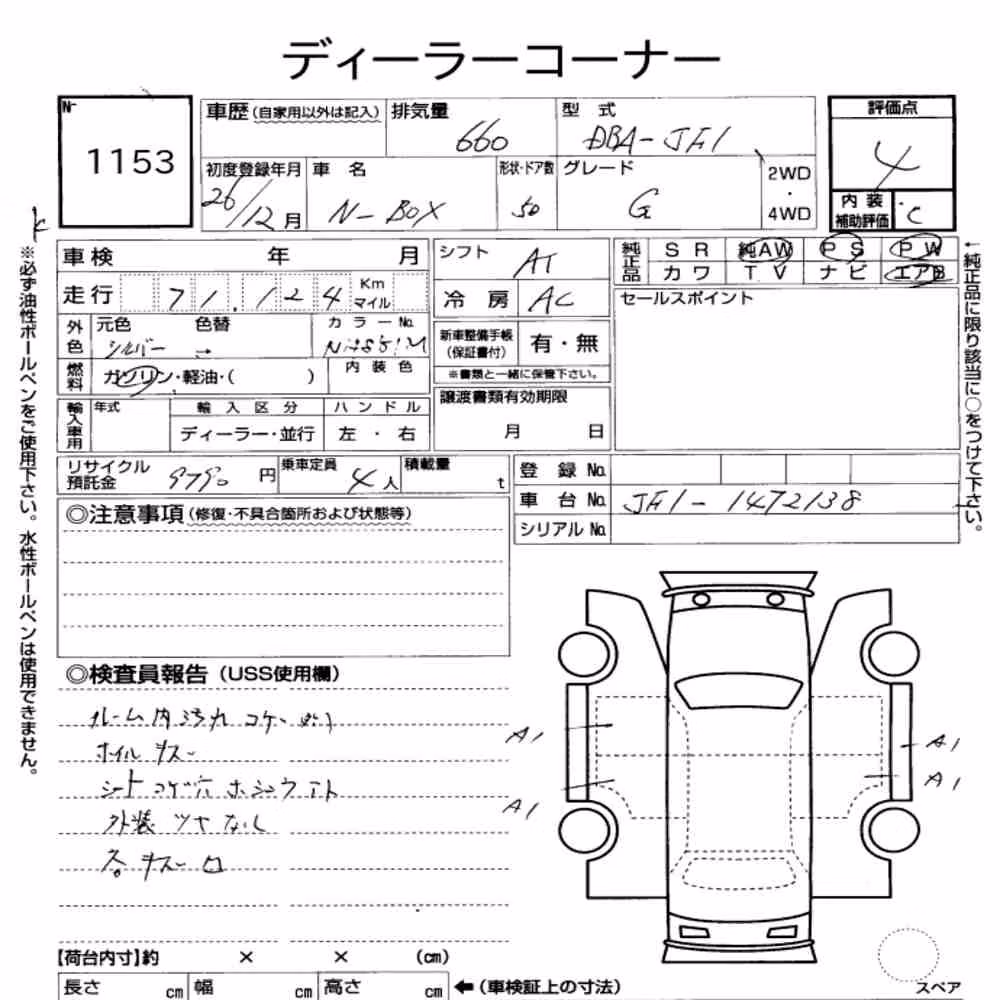 ディーラーコーナー
N-
1153
車歴(自家用以外は記入)
排気量
660
型 式
DBA-JF1
評価点
4
初度登録年月
26/12月
車 名
N-BOX
形状・ドア数
5D
グレード
G
2WD
・
4WD
内 装
補助評価
C
車検 年 月
シフト
AT
純正品
SR 純AW PS PW
カワ TV ナビ エアB
走行 71.124 Km
マイル
冷 房
AC
セールスポイント
外色
元色 色替
シルバー →
カラーNo.
新車整備手帳
(保証書付)
有・無
※書類と一緒に保管下さい。
燃料
ガソリン・軽油・( )
内 装 色
輸入車用
年式
輸 入 区 分
ディーラー・並行
ハ ン ド ル
左 ・ 右
譲渡書類有効期限
月 日
リサイクル
預託金
9790 円
乗車定員
4人
積載量
t
登 録 No.
車 台 No. JF1-1472138
シリアル No.
◎注意事項(修復・不具合箇所および状態等)
◎検査員報告(USS使用欄)
ルーム内汚れ コゲ
ホイル キズ
シート コゲ穴
外装 ツヤなし
キズ
A1
A1
A1
A1
【荷台内寸】約 × × (cm)
長さ cm 幅 cm 高さ cm ←(車検証上の寸法)
スペア
※必ず油性ボールペンをご使用下さい。水性ボールペンは使用できません。
←純正品に限り該当に○をつけて下さい。